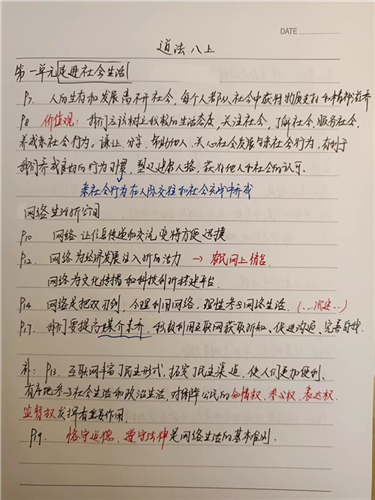 DATE
道法八上
第一单元走进社会生活
P7. 人的生存和发展离不开社会，每个人都从社会中获得物质支持和精神滋养
P8 价值观：我们应该树立积极的生活态度，关注社会，了解社会，服务社会，
养成亲社会行为。谦让、分享、帮助他人、关心社会发展等亲社会行为，有利于
我们养成良好的行为习惯，塑造健康人格，获得他人和社会的认可。
亲社会行为在人际交往和社会实践中养成
网络生活新空间
P10 网络让信息传递和交流变得方便迅捷
P12. 网络为经济发展注入新的活力 → 农民网上销售
网络为文化传播和科技创新搭建平台
P14 网络是把双刃剑，合理利用网络，理性参与网络生活。（…沉迷…）
P17. 我们要提高媒介素养，积极利用互联网获取新知、促进沟通、完善自我
补：P13. 互联网丰富了民主形式，拓宽了民主渠道，使人们更加便利、
有序地参与社会生活和政治生活，对保障公民的知情权、参与权、表达权、
监督权发挥着重要作用。
P19. 恪守道德、遵守法律是网络生活的基本准则。